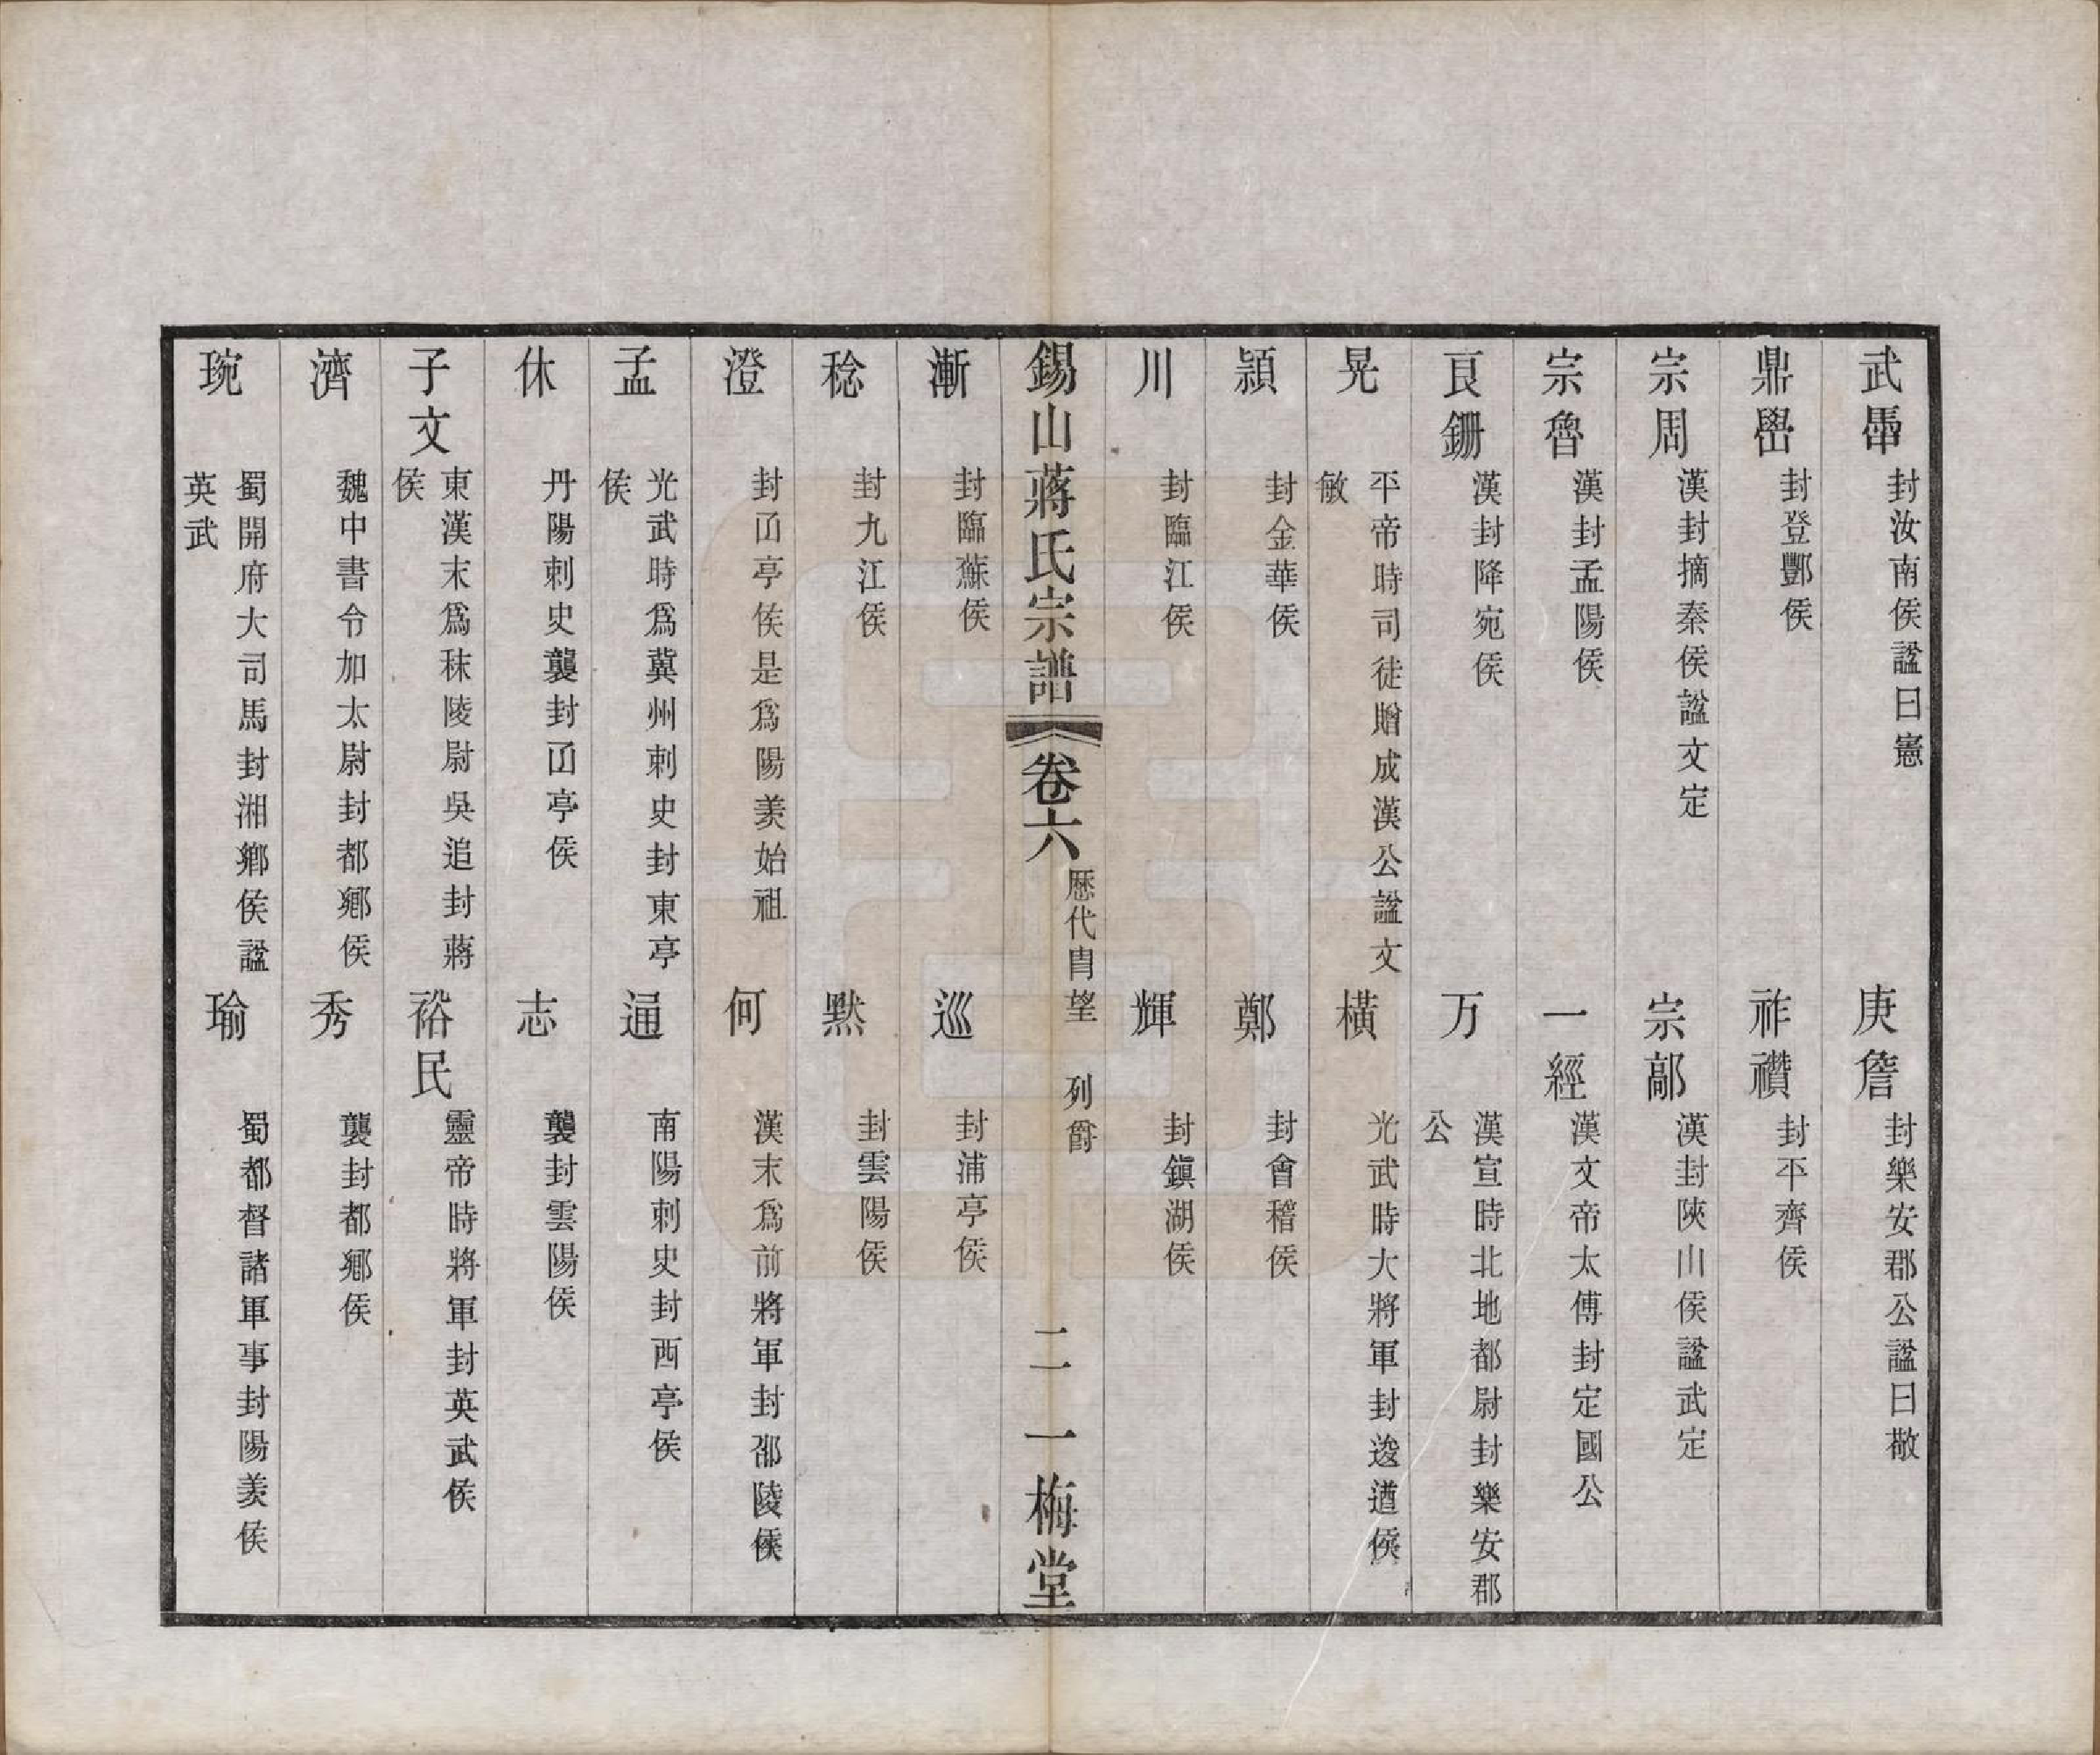 武𤲞 封汝南侯諡曰憲 庚詹 封樂安郡公諡曰敬
鼎嶨 封登酆侯 祚禶 封平齊侯
宗周 漢封摘秦侯諡文定 宗鄗 漢封陝山侯諡武定
宗魯 漢封孟陽侯 一經 漢文帝太傅封定國公
良鉶 漢封降宛侯 万 漢宣時北地都尉封樂安郡公
晃 平帝時司徒贈成漢公諡文敏 橫 光武時大將軍封逡遒侯
潁 封金華侯 鄭 封會稽侯
川 封臨江侯 輝 封鎭湖侯
錫山蔣氏宗譜 卷六 歷代冑望 列爵 二 一梅堂
漸 封臨蘇侯 巡 封浦亭侯
稔 封九江侯 默 封雲陽侯
澄 封㓛亭侯是爲陽羨始祖 何 漢末爲前將軍封邵陵侯
孟 光武時爲冀州刺史封東亭侯 通 南陽刺史封西亭侯
休 丹陽刺史襲封㓛亭侯 志 襲封雲陽侯
子文 東漢末爲秣陵尉吳追封蔣侯 裕民 靈帝時將軍封英武侯
濟 魏中書令加太尉封都鄉侯 秀 襲封都鄉侯
琬 蜀開府大司馬封湘鄉侯諡英武 瑜 蜀都督諸軍事封陽羨侯